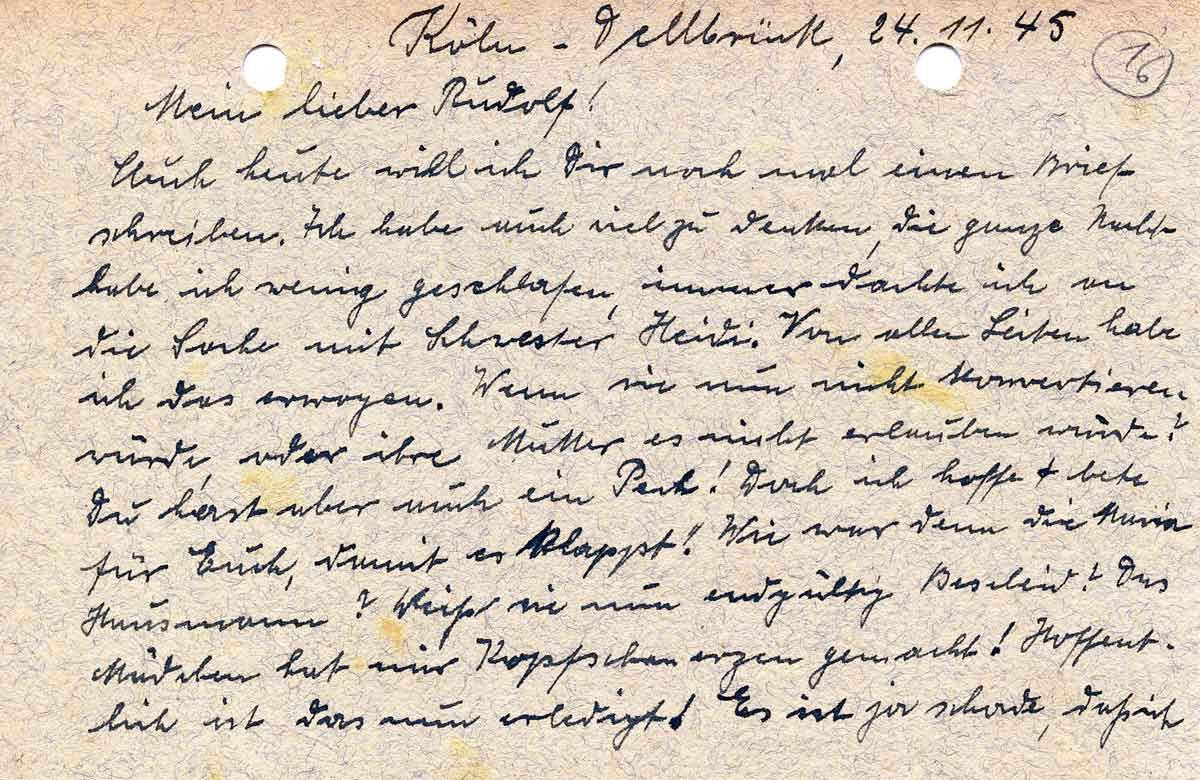 Köln - Dellbrück, 24. 11. 45
16
Mein lieber Rudolf!
Auch heute will ich Dir noch mal einen Brief
schreiben. Ich habe auch viel zu denken, die ganze Nacht
habe ich wenig geschlafen, immer dachte ich an
die Sache mit Schwester Heidi. Von allen Seiten habe
ich das erwogen. Wenn sie nun nicht konvertieren
würde, oder ihre Mutter es nicht erlauben würde?
Du hast aber auch ein Pech! Doch ich hoffe & bete
für Euch, damit es klappt! Wie war denn die Maria
Hausmann? Weiß sie nun endgültig Bescheid? Das
Mädchen hat mir Kopfschmerzen gemacht! Hoffent-
lich ist das nun erledigt! Es ist ja schade, daß ich